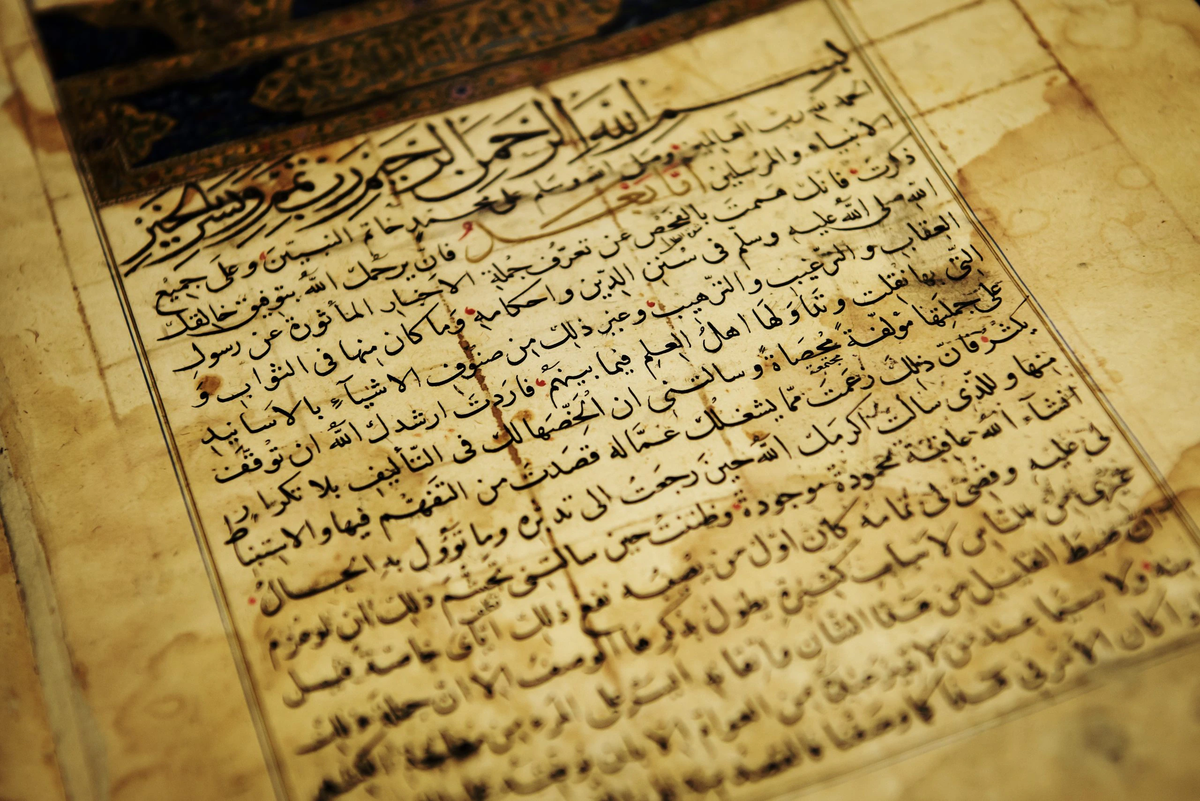 بسم الله الرحمن الرحيم رب تمم ويسر بالخير
الحمد لله رب العالمين وصلى الله وسلم على محمد خاتم النبيين وعلى جميع
الانبياء والمرسلين اما بعد فانك يرحمك الله بتوفيق خالقك
ذكرت انك هممت بالفحص عن تعرف جملة الاخبار المأثورة عن رسول
الله صلى الله عليه وسلم فى سنن الدين واحكامه وما كان منها فى الثواب و
العقاب والترغيب والترهيب وغير ذلك من صنوف الاشيآء بالاسانيد
التى بها نقلت وتداولها اهل العلم فيما بينهم فاردت ارشدك الله ان توقف
على جملتها مؤلفة محصاة وسالتنى ان الخصها لك فى التأليف بلا تكرار
يكثر فان ذلك زعمت مما يشغلك عما له قصدت من التفهم فيها والاستنباط
منها وللذى سالت اكرمك الله حين رجعت الى تدبره وما تؤول به الحال
انشاء الله عاقبة محمودة موجودة وظننت حين سالتنى تجشم ذلك ان لو عزم
لى عليه وقضى لى تمامه كان اول من يصيبه نفع ذلك اياى خاصة قبل
غيرى من الناس لاسباب كثيرة يطول بذكرها الوصف الا ان جملة ذلك
ان ضبط القليل من هذا الشان واتقانه ايسر على المرء من معالجة الكثير
منه ولا سيما عند من لا تمييز عنده من العوام الا بان يوقفه على
كان الامر فى هذا كما وصفنا فالقصد منه